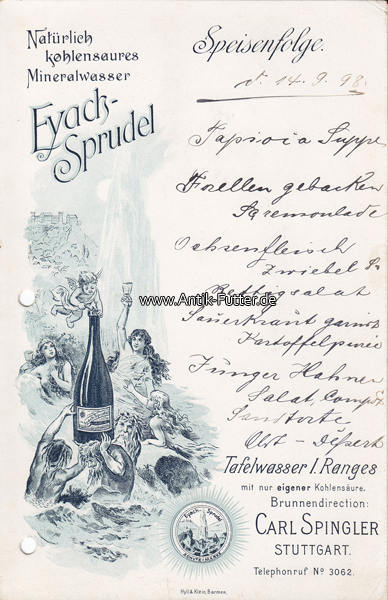 Natürlich
kohlensaures
Mineralwasser
Eyach-
Sprudel
Speisenfolge.
d. 14.9.98.
Tapioca Suppe
Forellen gebacken
Saremoulade
Ochsenfleisch
Zwiebel
Rettigsalat
Sauerkraut garnirt
Kartoffelpüree
Junger Hahnen
Salat, Compot
Sandtorte
Obst - Dessert
www.Antik-Futter.de
Tafelwasser I. Ranges
mit nur eigener Kohlensäure.
Brunnendirection:
CARL SPINGLER
STUTTGART.
Telephonruf No 3062.
Eyach-Sprudel
SCHUTZ-MARKE
Hyll & Klein, Barmen.